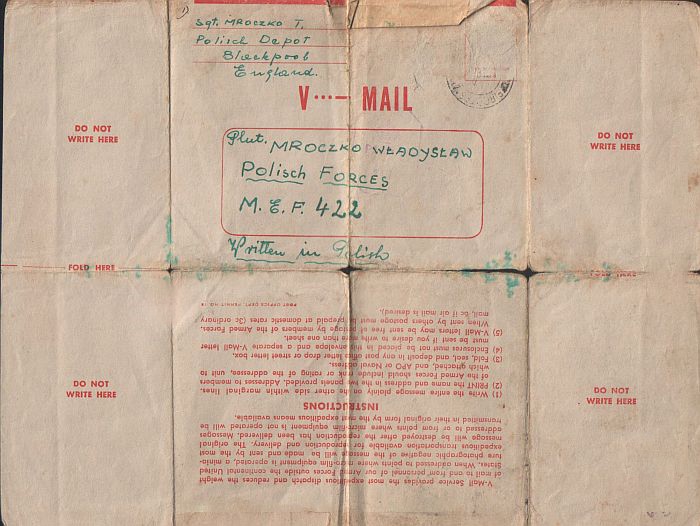 1)
Sgt. MROCZKO T.
Polisch Depot
Blackpool
England.
V···— MAIL
DO NOT
WRITE HERE
DO NOT
WRITE HERE
Plut. MROCZKO WŁADYSŁAW
Polisch FORCES
M. E. F. 422
Written in Polish
FOLD HERE
FOLD HERE
V-Mail Service provides the most expeditious dispatch and reduces the weight
of mail to and from personnel of our Armed Forces outside the continental United
States. When addressed to points where micro-film equipment is operated, a minia-
ture photographic negative of the message will be made and sent by the most
expeditious transportation available for reproduction and delivery. The original
message will be destroyed after the reproduction has been delivered. Messages
addressed to or from points where microfilm equipment is not operated will be
transmitted in their original form by the most expeditious means available.
INSTRUCTIONS
(1) Write the entire message plainly on the other side within marginal lines.
(2) PRINT the name and address in the two panels provided. Addresses to members
of the Armed Forces should include rank or rating of the addressee, unit to
which attached, and APO or Naval address.
(3) Fold, seal, and deposit in any post office letter drop or street letter box.
(4) Enclosures must not be placed in this envelope and a separate V-Mail letter
must be sent if you desire to write more than one sheet.
(5) V-Mail letters may be sent free of postage by members of the Armed Forces.
When sent by others postage must be prepaid at domestic rates (3c ordinary
mail, 6c if air mail is desired).
POST OFFICE DEPT. PERMIT NO.
DO NOT
WRITE HERE
DO NOT
WRITE HERE